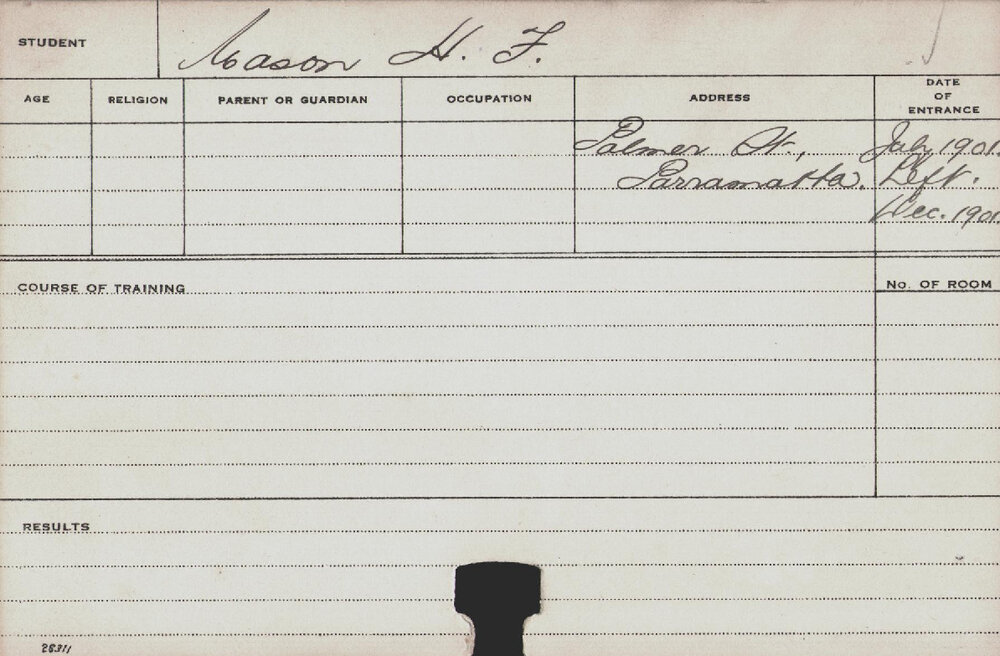 STUDENT Cason H. F.
AGE RELIGION PARENT OR GUARDIAN OCCUPATION ADDRESS DATE OF ENTRANCE
Palmer St., July 1901.
Parramatta. Left.
Dec. 1901.
COURSE OF TRAINING No. OF ROOM
RESULTS
28311